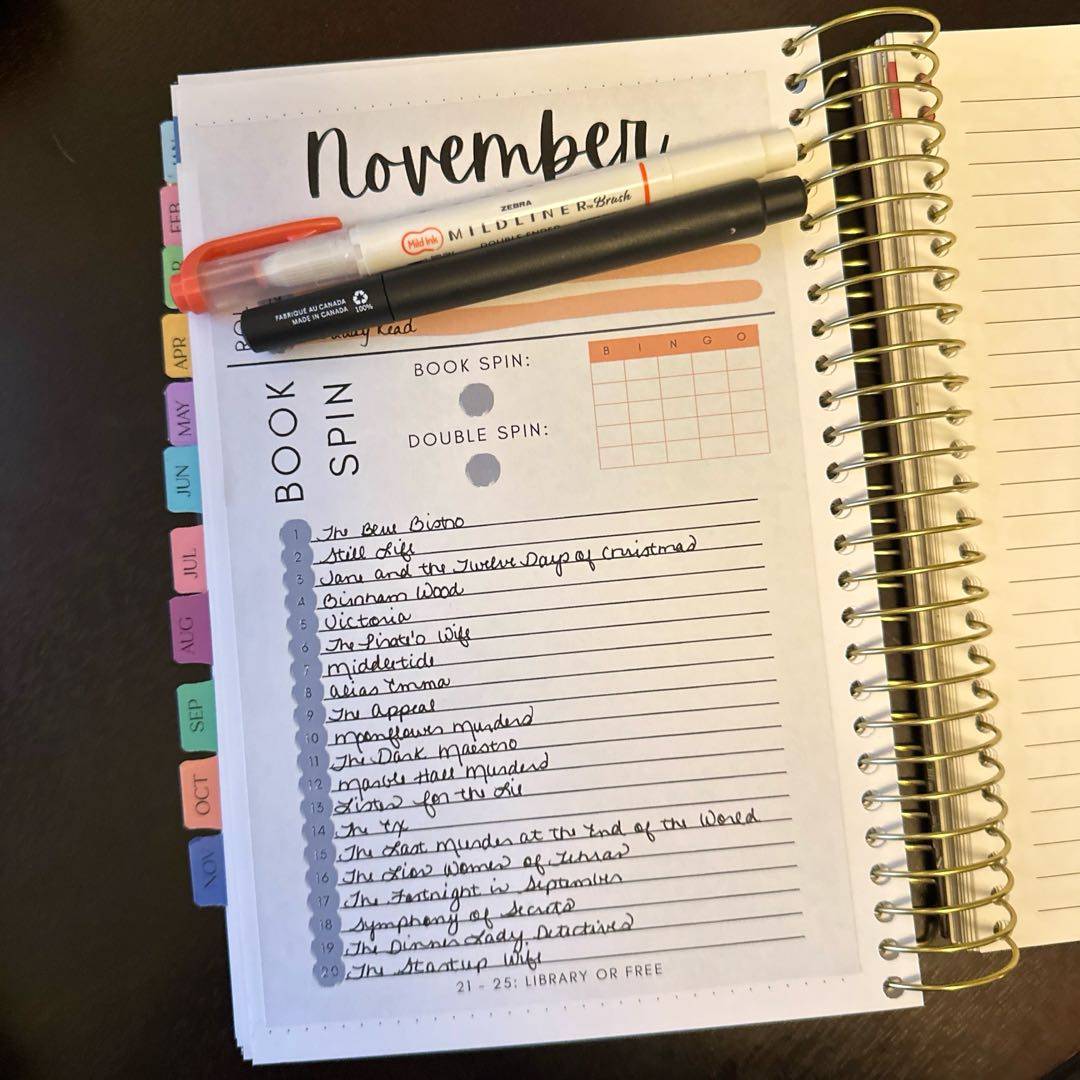 November
ZEBRA
Mild Ink MILDLINER Brush
DOUBLE ENDED
FABRIQUE AU CANADA
MADE IN CANADA
100%
Buddy Read
BOOK SPIN
BOOK SPIN:
DOUBLE SPIN:
B I N G O
1 The Blue Bistro
2 Still Life
3 Jane and the Twelve Days of Christmas
4 Birnham Wood
5 Victoria
6 The Pirate's Wife
7 Middletide
8 Alias Emma
9 The Appeal
10 Moonflower Murders
11 The Dark Maestro
12 Marble Hall Murders
13 Listen for the Lie
14 The Ex
15 The Last Murder at the End of the World
16 The Lion Women of Tehran
17 The Fortnight in September
18 Symphony of Secrets
19 The Dinner Lady Detectives
20 The Startup Wife
21 - 25: LIBRARY OR FREE
FEB
APR
MAY
JUN
JUL
AUG
SEP
OCT
NOV